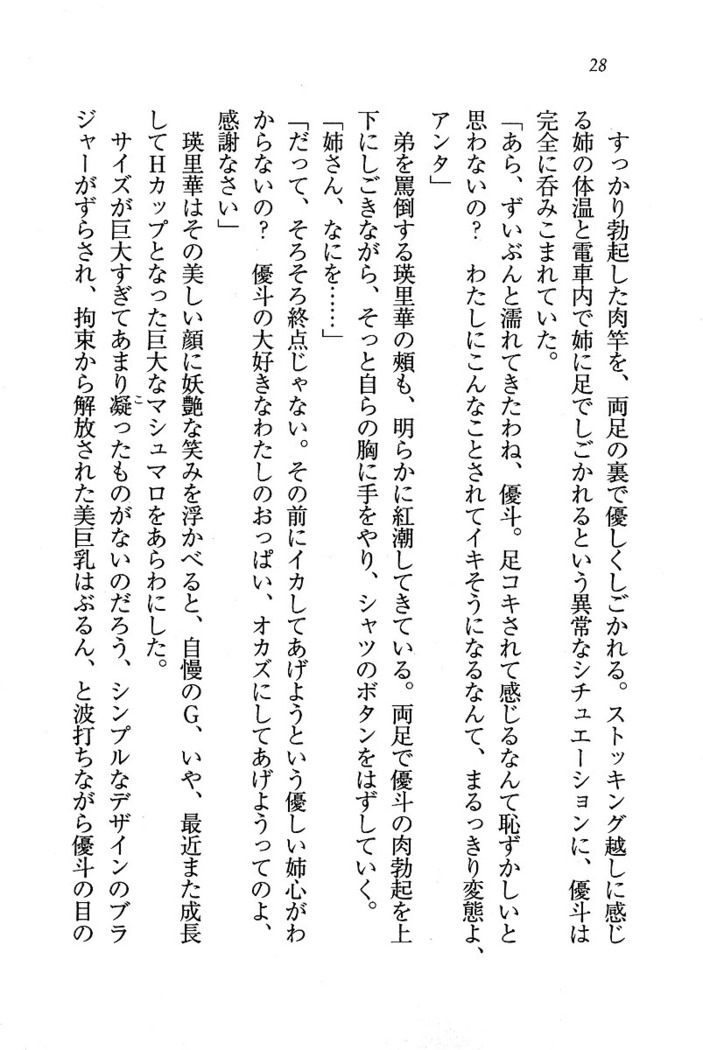 28
すっかり勃起した肉竿を、両足の裏で優しくしごかれる。ストッキング越しに感じ
る姉の体温と電車内で姉に足でしごかれるという異常なシチュエーションに、優斗は
完全に呑みこまれていた。
「あら、ずいぶんと濡れてきたわね、優斗。足コキされて感じるなんて恥ずかしいと
思わないの？　わたしにこんなことされてイキそうになるなんて、まるっきり変態よ、
アンタ」
弟を罵倒する瑛里華の頰も、明らかに紅潮してきている。両足で優斗の肉勃起を上
下にしごきながら、そっと自らの胸に手をやり、シャツのボタンをはずしていく。
「姉さん、なにを……」
「だって、そろそろ終点じゃない。その前にイカしてあげようという優しい姉心がわ
からないの？　優斗の大好きなわたしのおっぱい、オカズにしてあげようってのよ、
感謝なさい」
瑛里華はその美しい顔に妖艶な笑みを浮かべると、自慢のＧ、いや、最近また成長
してＨカップとなった巨大なマシュマロをあらわにした。
サイズが巨大すぎてあまり凝こったものがないのだろう、シンプルなデザインのブラ
ジャーがずらされ、拘束から解放された美巨乳はぶるん、と波打ちながら優斗の目の